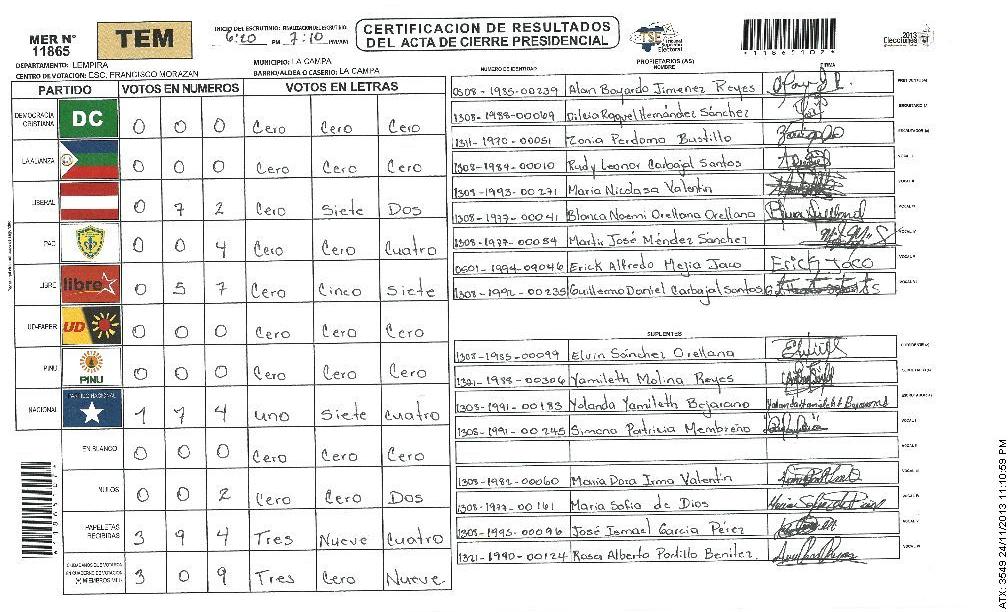 MER N° 11865
TEM
INICIO DEL ESCRUTINIO: FINALIZACION DEL ESCRUTINIO:
6:20 PM 7:10 PM/AM
CERTIFICACION DE RESULTADOS
DEL ACTA DE CIERRE PRESIDENCIAL
TSE
Tribunal Supremo Electoral
2013
Elecciones
DEPARTAMENTO: LEMPIRA
MUNICIPIO: LA CAMPA
CENTRO DE VOTACION: ESC. FRANCISCO MORAZAN
BARRIO/ALDEA O CASERIO: LA CAMPA
PARTIDO VOTOS EN NUMEROS VOTOS EN LETRAS
DEMOCRACIA CRISTIANA DC 0 0 0 Cero Cero Cero
LA ALIANZA 0 0 0 Cero Cero Cero
LIBERAL 0 7 2 Cero Siete Dos
PAC 0 0 4 Cero Cero Cuatro
LIBRE libre 0 5 7 Cero Cinco Siete
UD-FAPER UD 0 0 0 Cero Cero Cero
PINU PINU 0 0 0 Cero Cero Cero
NACIONAL PARTIDO NACIONAL 1 7 4 uno Siete Cuatro
EN BLANCO 0 0 0 Cero Cero Cero
NULOS 0 0 2 Cero Cero Dos
PAPELETAS RECIBIDAS 3 9 4 Tres Nueve Cuatro
3 0 9 Tres Cero Nueve
PROPIETARIOS (AS)
NUMERO DE IDENTIDAD NOMBRE FIRMA
0508-1985-00239 Alan Bayardo Jimenez Reyes
1308-1988-00069 Dilcia Raquel Hernández Sánchez
1311-1970-00051 Zonia Perdomo Bustillo
1308-1984-00010 Rudy Leonor Carbajal Santos
1308-1993-00271 Maria Nicolasa Valentin
1308-1977-00041 Blanca Noemi Orellana Orellana
1308-1987-00054 Martir José Méndez Sánchez
0501-1994-09046 Erick Alfredo Mejia Jaco Erick Jaco
1308-1992-00235 Guillermo Daniel Carbajal Santos
SUPLENTES
1308-1985-00099 Elvin Sánchez Orellana
1321-1988-00306 Yamileth Molina Reyes
1303-1991-00183 Yolanda Yamileth Bejarano
1308-1991-00245 Simona Patricia Membreño
1308-1982-00060 Maria Dora Irma Valentin
1308-1977-00161 Maria Sofia de Dios
1308-1995-00096 José Ismael Garcia Pérez
1321-1990-00124 Rosa Alberto Padillo Benitez
ATX: 3549 24/11/2013 11:10:59 PM